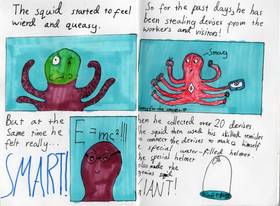 The squid started to feel
wierd and queasy.
But at the
same time he
felt really...
SMART!
E=mc²!!!
So for the past days, he has
been stealing devises from the
workers and visitors!
Smaug
hen he collected over 20 devises
he squid then used his skilled
connect the devises to make himself
e special water-filled helmet
he special helmet
genius squid
IANT!